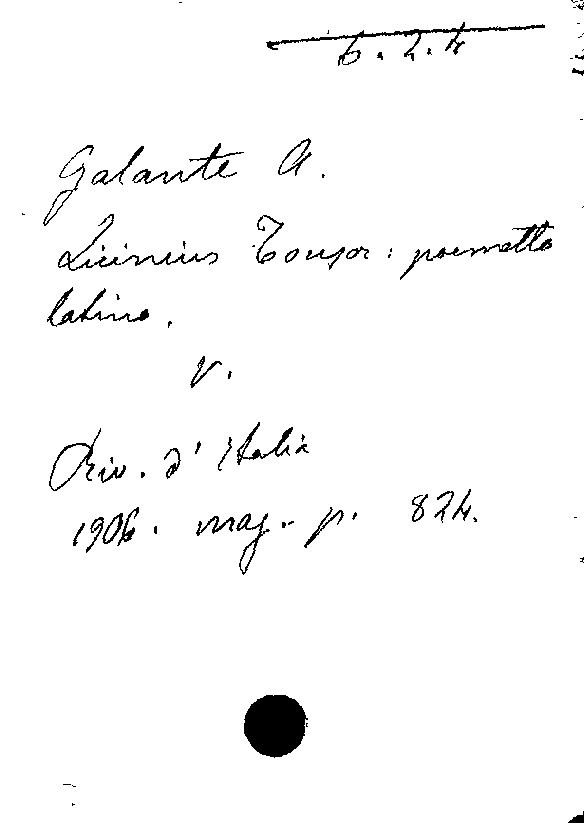 6.2.4
Galante A.
Licinius Tonsor: poemetto
latino.
v.
Riv. d'Italia
1906. mag. p. 824.